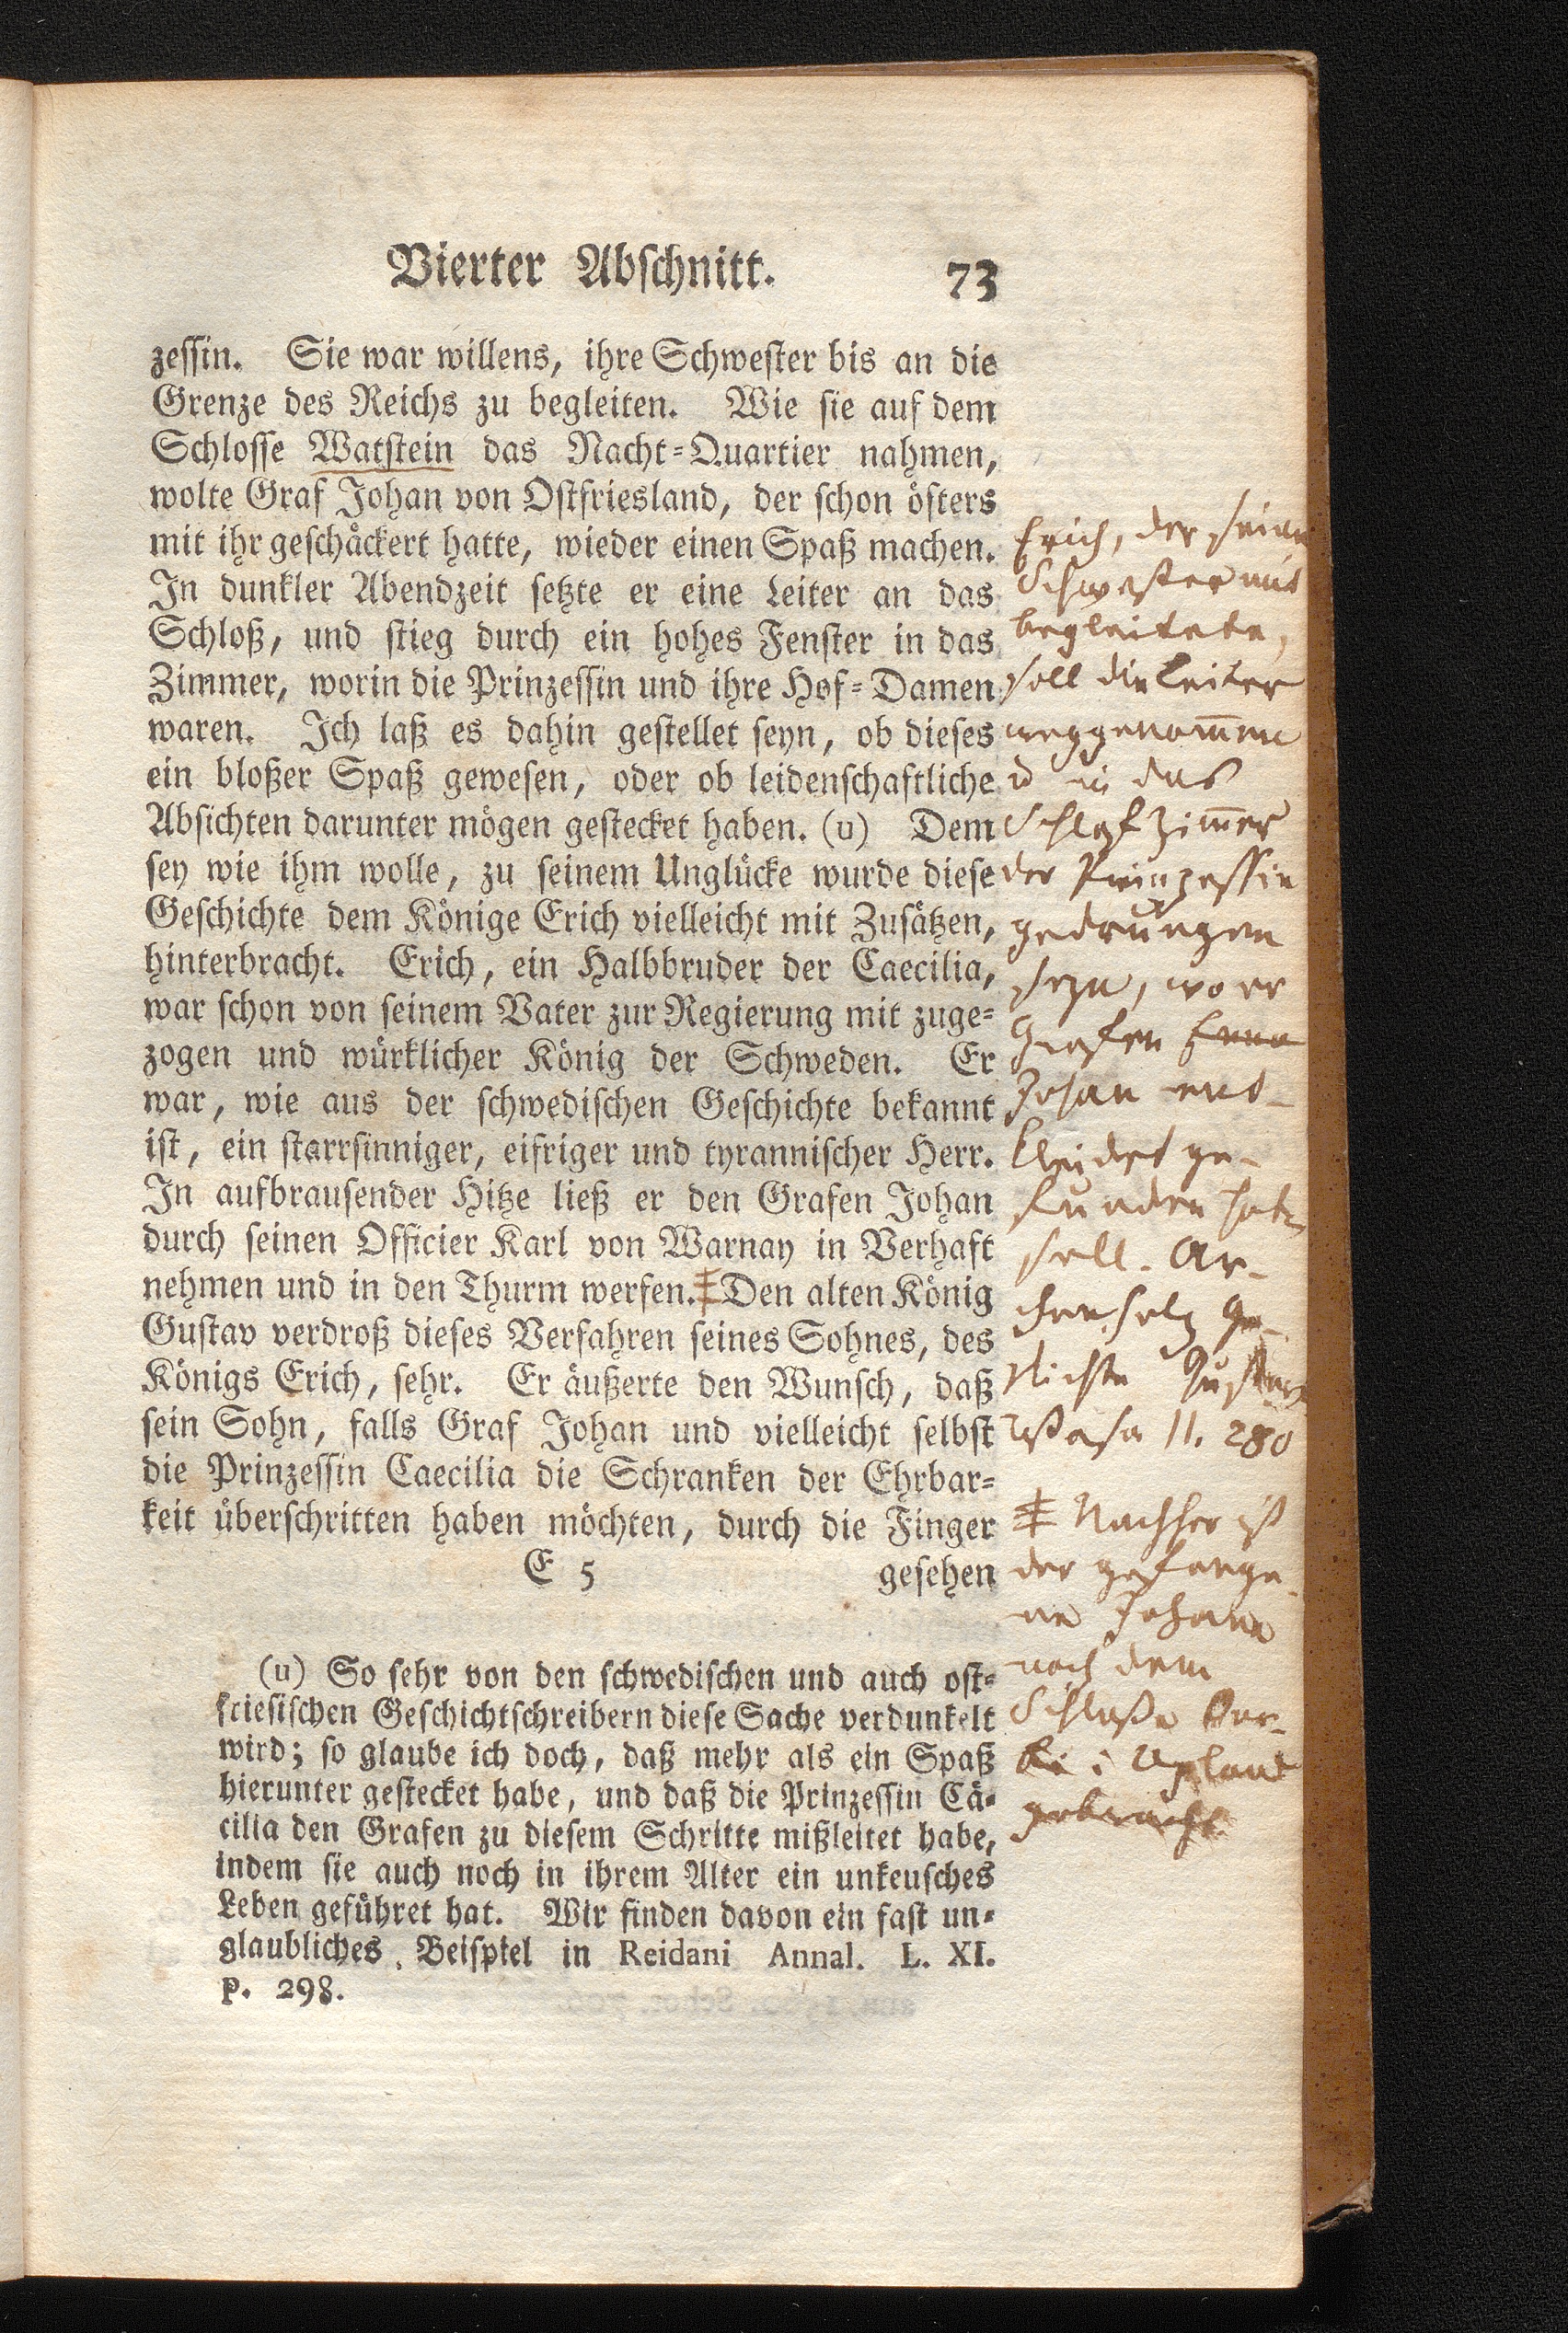 Vierter Abschnitt. 73
zessin. Sie war willens, ihre Schwester bis an die
Grenze des Reichs zu begleiten. Wie sie auf dem
Schlosse Watstein das Nacht-Quartier nahmen,
wolte Graf Johan von Ostfriesland, der schon öfters
mit ihr geschäckert hatte, wieder einen Spaß machen.
In dunkler Abendzeit setzte er eine Leiter an das
Schloß, und stieg durch ein hohes Fenster in das
Zimmer, worin die Prinzessin und ihre Hof-Damen
waren. Ich laß es dahin gestellet seyn, ob dieses
ein bloßer Spaß gewesen, oder ob leidenschaftliche
Absichten darunter mögen gestecket haben. (u) Dem
sey wie ihm wolle, zu seinem Unglücke wurde diese
Geschichte dem Könige Erich vielleicht mit Zusätzen,
hinterbracht. Erich, ein Halbbruder der Caecilia,
war schon von seinem Vater zur Regierung mit zuge-
zogen und würklicher König der Schweden. Er
war, wie aus der schwedischen Geschichte bekannt
ist, ein starrsinniger, eifriger und tyrannischer Herr.
In aufbrausender Hitze ließ er den Grafen Johan
durch seinen Officier Karl von Warnay in Verhaft
nehmen und in den Thurm werfen. ‡ Den alten König
Gustav verdroß dieses Verfahren seines Sohnes, des
Königs Erich, sehr. Er äußerte den Wunsch, daß
sein Sohn, falls Graf Johan und vielleicht selbst
die Prinzessin Caecilia die Schranken der Ehrbar-
keit überschritten haben möchten, durch die Finger
E 5 gesehen
(u) So sehr von den schwedischen und auch ost-
friesischen Geschichtschreibern diese Sache verdunkelt
wird; so glaube ich doch, daß mehr als ein Spaß
hierunter gestecket habe, und daß die Prinzessin Cä-
cilia den Grafen zu diesem Schritte mißleitet habe,
indem sie auch noch in ihrem Alter ein unkeusches
Leben geführet hat. Wir finden davon ein fast un-
glaubliches Beispiel in Reidani Annal. L. XI.
p. 298.
Erich, der seine
Schwester mit
begleitete,
soll die Leiter
weggenom̅men
u in das
Schlafzim̅er
der Prinzessin
gedrungen
seyn, wo er
Grafen Enno
Johan ent-
kleidet ge-
funden haben
soll. Ar-
chenholz Ge-
schichte Gustav
Wasa II. 280
‡ Nachher ist
der gefange-
ne Johann
nach dem
Schloße Oer-
bi i Upland
gebracht